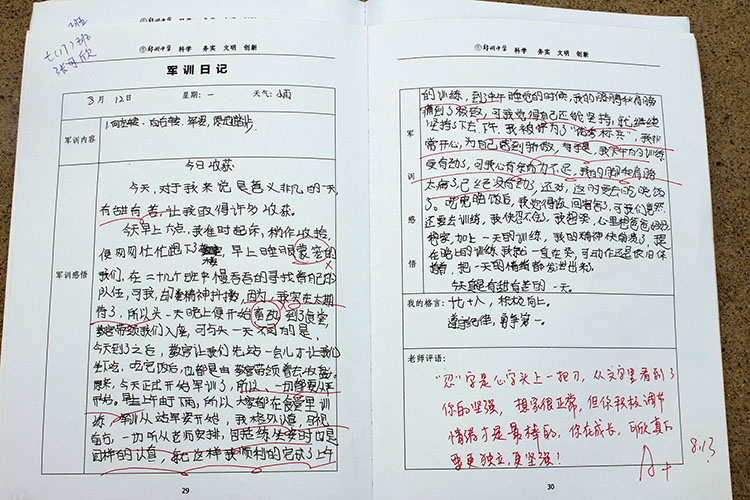 七(17)班
郑州中学 科学 务实 文明 创新
军训日记
8月12日 星期:一 天气:小雨
军训内容
1.向左转、向右转、军姿、原地踏步
今日收获
今天,对于我来说是意义非凡的一天,
有甜有苦,让我取得许多收获。
今天早上六点,我准时起床,梳洗收拾,
便匆匆忙忙跑下楼,早上睡眼蒙宠的
我们,在二十九个班中慢吞吞的寻找着自己的
队伍,可我,却精神抖擞,因为,我实在太期
待了,所以头一天晚上便开始
到了食堂,
教官带领我们入座,可与头一天不同的是,
今天到了之后,教官让我们先站一会儿才让我们
坐下吃,吃完饭后,也都是由教官带领着去收盘。
原来,今天正式开始军训了,所以,一切都要从严
开始。早上由于下雨,所以大家都在食堂里训
练,军训从站军姿开始,我格外认真,目视
前方,一切听从老师安排,
练坐姿时也是
同样的认真,就这样我顺利的完成了上午
军训感悟
29
郑州中学 科学 务实 文明 创新
的训练,到了中午睡觉的时候,我的胳膊和肩膀
痛到了极致,可我觉得自己还能坚持,就继续
坚持了下去,下午,我被评为了“优秀标兵”,我非
常开心,为自己感到骄傲,
我下午的训练
更有动力了,可我心有余而力不足,我的脚和肩膀
太痛了,已经没有
了,还好,这时要去吃晚饭
了。吃完晚饭后,我觉得该回宿舍了,可我们竟然
还要去训练,我快忍不住了,我想哭,心里想爸爸妈妈
想家,加上一天的训练,我的精神快崩溃了,
在晚上的训练,我就一直在哭,可动作还是依旧保
持着,把一天的情绪都发泄出来了。
今天是有甜有苦的一天。
军训感悟
我的格言:十七十八,积极向上。
遵守纪律,勇争第一。
老师评语:
“忍”字是心字头上一把刀,从文字里看到了
你的坚强,想家很正常,但你积极调节
情绪才是最棒的,你在成长,可欣真不
要更独立,更坚强!
A+ 8.13
30